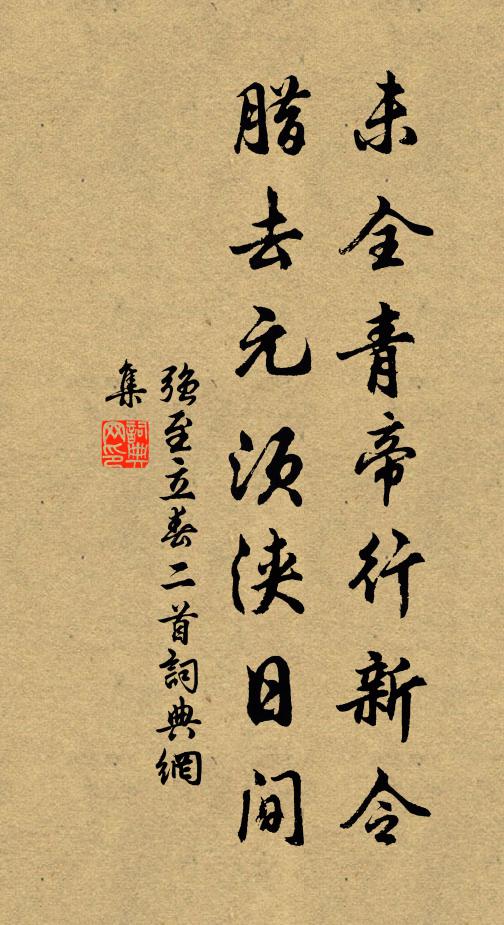 未全青帝行新令
腊去元须浃日间
强至立春二首詞典網
集
詞典网印